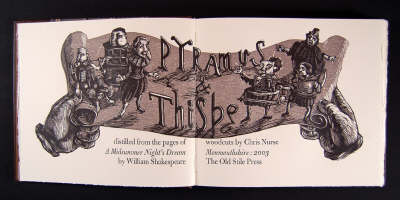 PYRAMUS
&
Thisbe
distilled from the pages of
A Midsummer Night's Dream
by William Shakespeare
woodcuts by Chris Nurse
Monmouthshire : 2003
The Old Stile Press